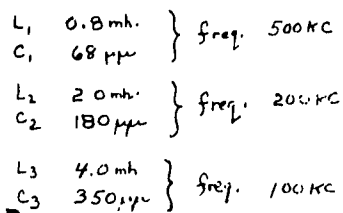 L1 0.8 mh. } freq. 500 KC
C1 68 μμ
L2 2.0 mh. } freq. 200 KC
C2 180 μμ
L3 4.0 mh } freq. 100 KC
C3 350 μμ